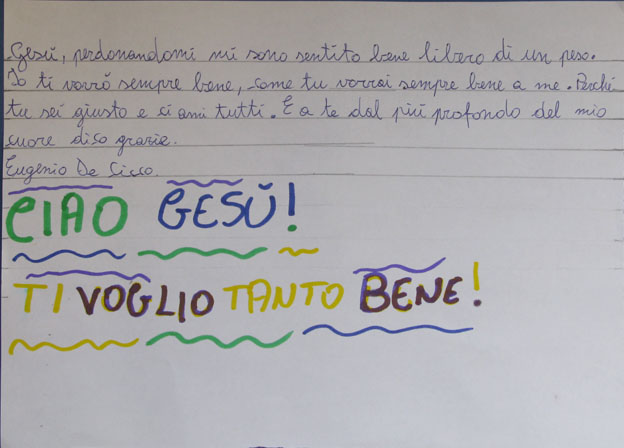 Gesù, perdonandomi mi sono sentito bene libero di un peso.
Io ti vorrò sempre bene, come tu vorrai sempre bene a me. Perché
tu sei giusto e ci ami tutti. E a te dal più profondo del mio
cuore dico grazie.
Eugenio De Cicco.
CIAO GESÙ!
TI VOGLIO TANTO BENE!